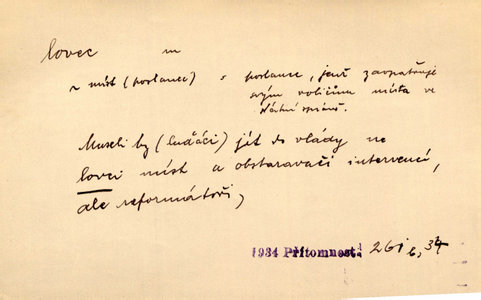 lovec m
~ míst (poslanec) = poslanec, jenž zaopatřuje
svým voličům místa ve
státní správě.
Museli by (luďáci) jít do vlády ne
lovci míst a obstaravači intervencí,
ale reformátoři,
1934 Přítomnost 261